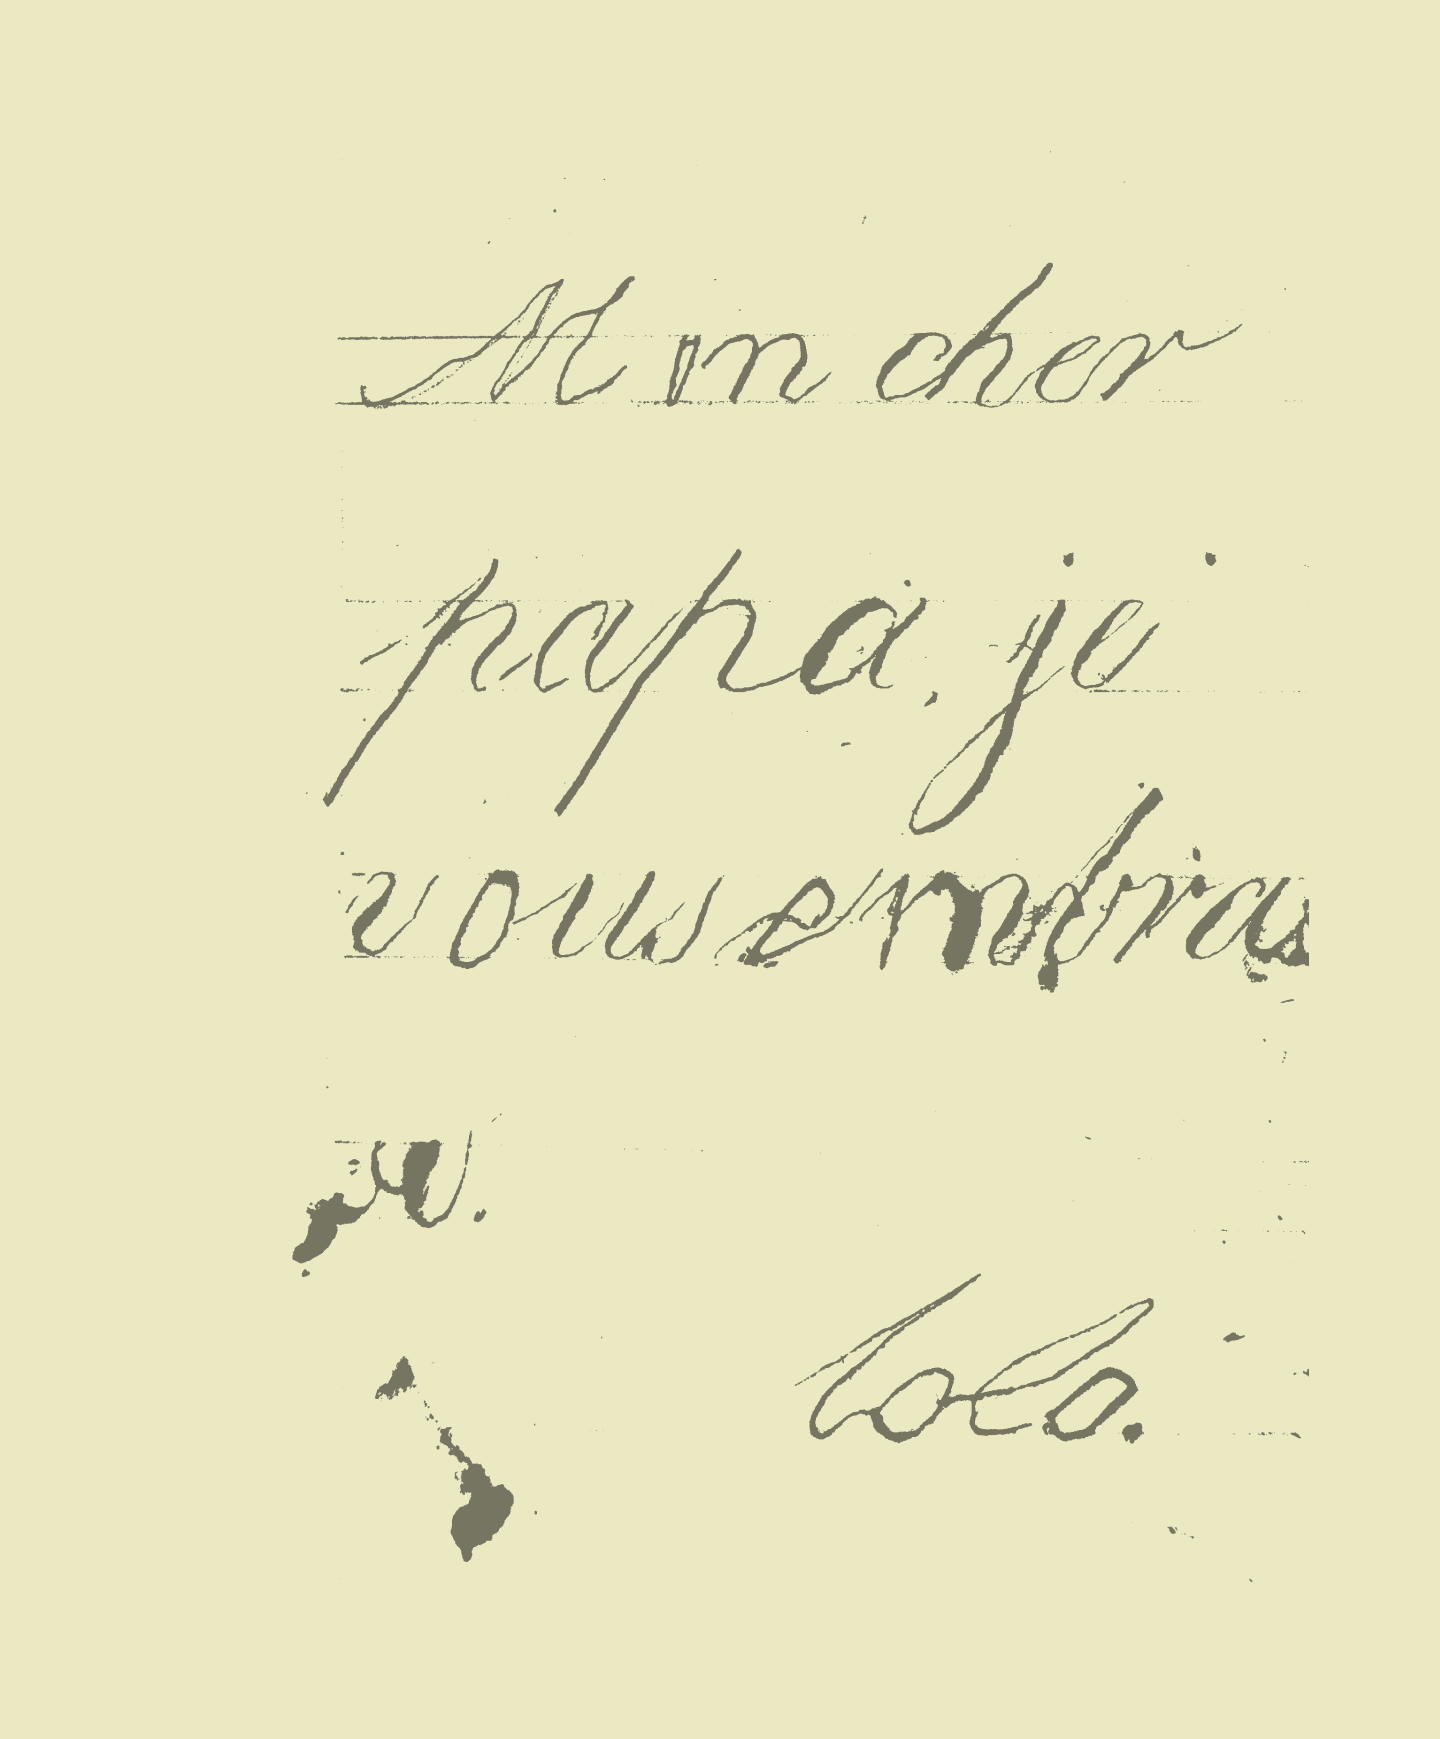 Min cher
papa. je
vous embras
se.
lolo.